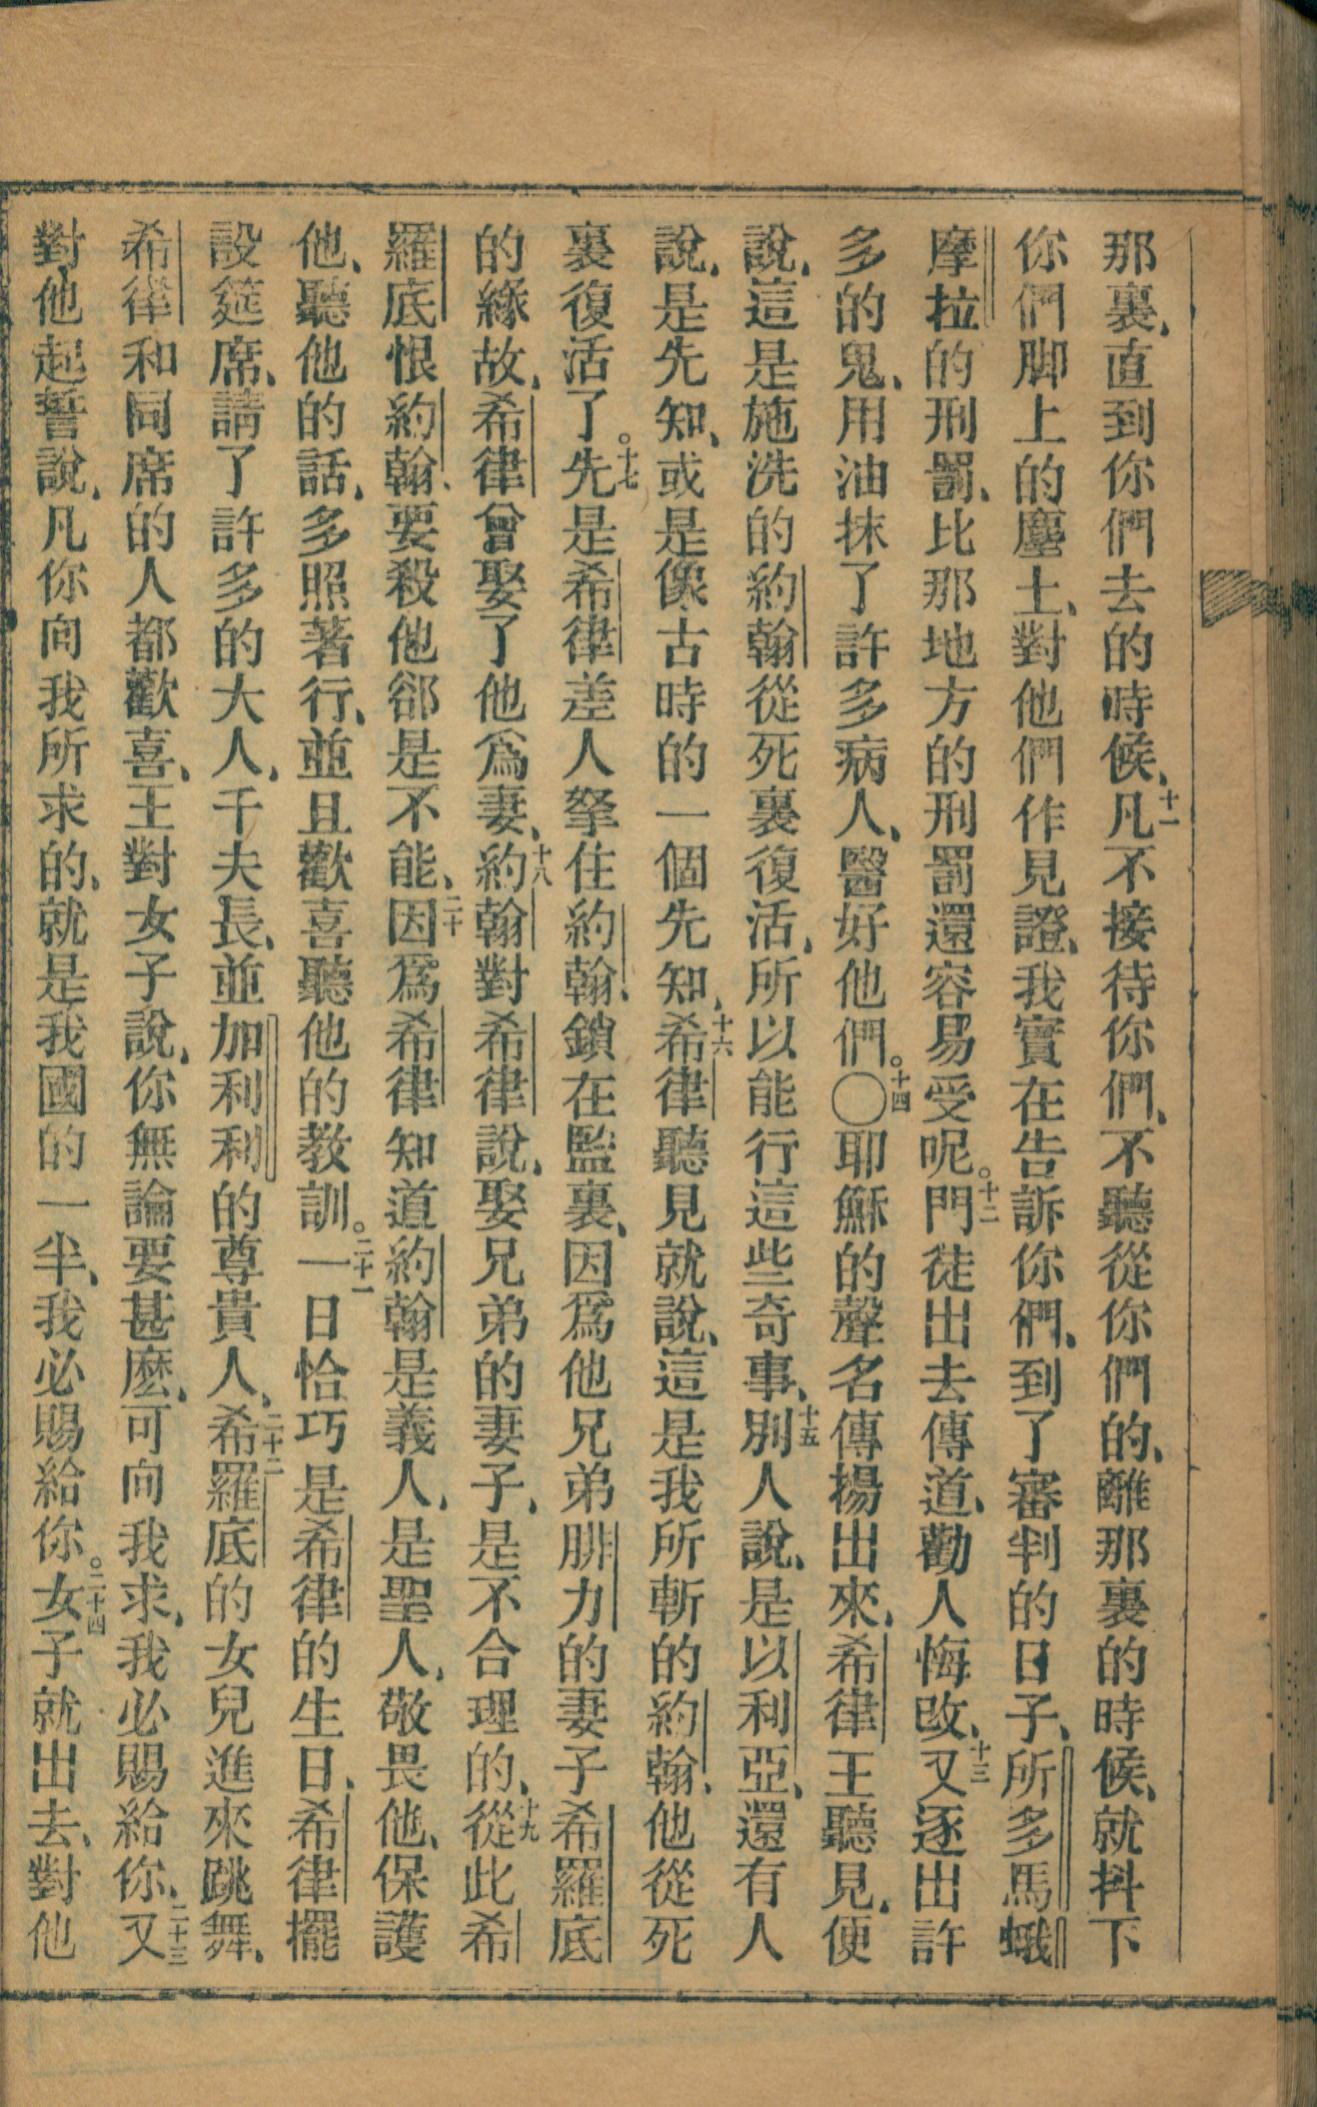 那裏、直到你們去的時候、十一凡不接待你們、不聽從你們的、離那裏的時候、就抖下
你們脚上的塵土、對他們作見證、我實在告訴你們、到了審判的日子、所多馬蛾
摩拉的刑罰、比那地方的刑罰還容易受呢。十二門徒出去傳道、勸人悔改、十三又逐出許
多的鬼、用油抹了許多病人、醫好他們。十四〇耶穌的聲名傳揚出來、希律王聽見、便
說、這是施洗的約翰從死裏復活、所以能行這些奇事、十五別人說、是以利亞、還有人
說、是先知、或是像古時的一個先知、十六希律聽見就說、這是我所斬的約翰、他從死
裏復活了。十七先是希律差人拏住約翰、鎖在監裏、因爲他兄弟腓力的妻子希羅底
的緣故、希律曾娶了他爲妻、十八約翰對希律說、娶兄弟的妻子、是不合理的、十九從此希
羅底恨約翰、要殺他郤是不能、二十因爲希律知道約翰是義人、是聖人、敬畏他、保護
他、聽他的話、多照著行、並且歡喜聽他的教訓。二十一一日恰巧是希律的生日、希律擺
設筵席、請了許多的大人、千夫長、並加利利的尊貴人、二十二希羅底的女兒進來跳舞、
希律和同席的人都歡喜、王對女子說、你無論要甚麽、可向我求、我必賜給你、二十三又
對他起誓說、凡你向我所求的、就是我國的一半、我必賜給你。二十四女子就出去、對他